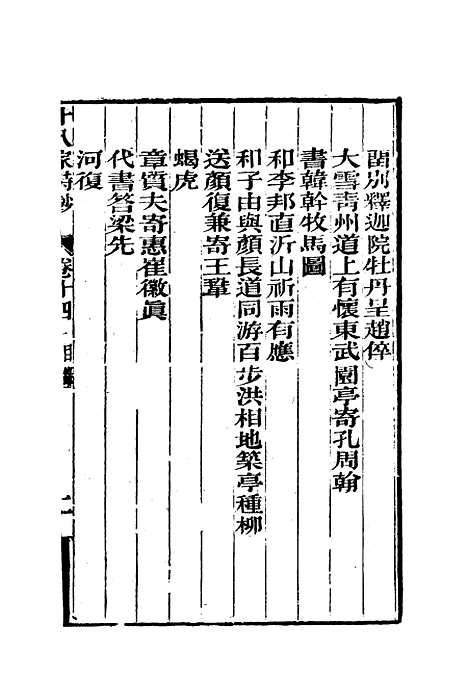 留別釋迦院牡丹呈趙倅
大雪青州道上有懷東武園亭寄孔周翰
書韓幹牧馬圖
和李邦直沂山祈雨有應
和子由與顏長道同游百步洪相地築亭種柳
送顏復兼寄王鞏
蝎虎
章質夫寄惠崔徽眞
代書答梁先
河復
十八家詩鈔 卷十四目錄 二